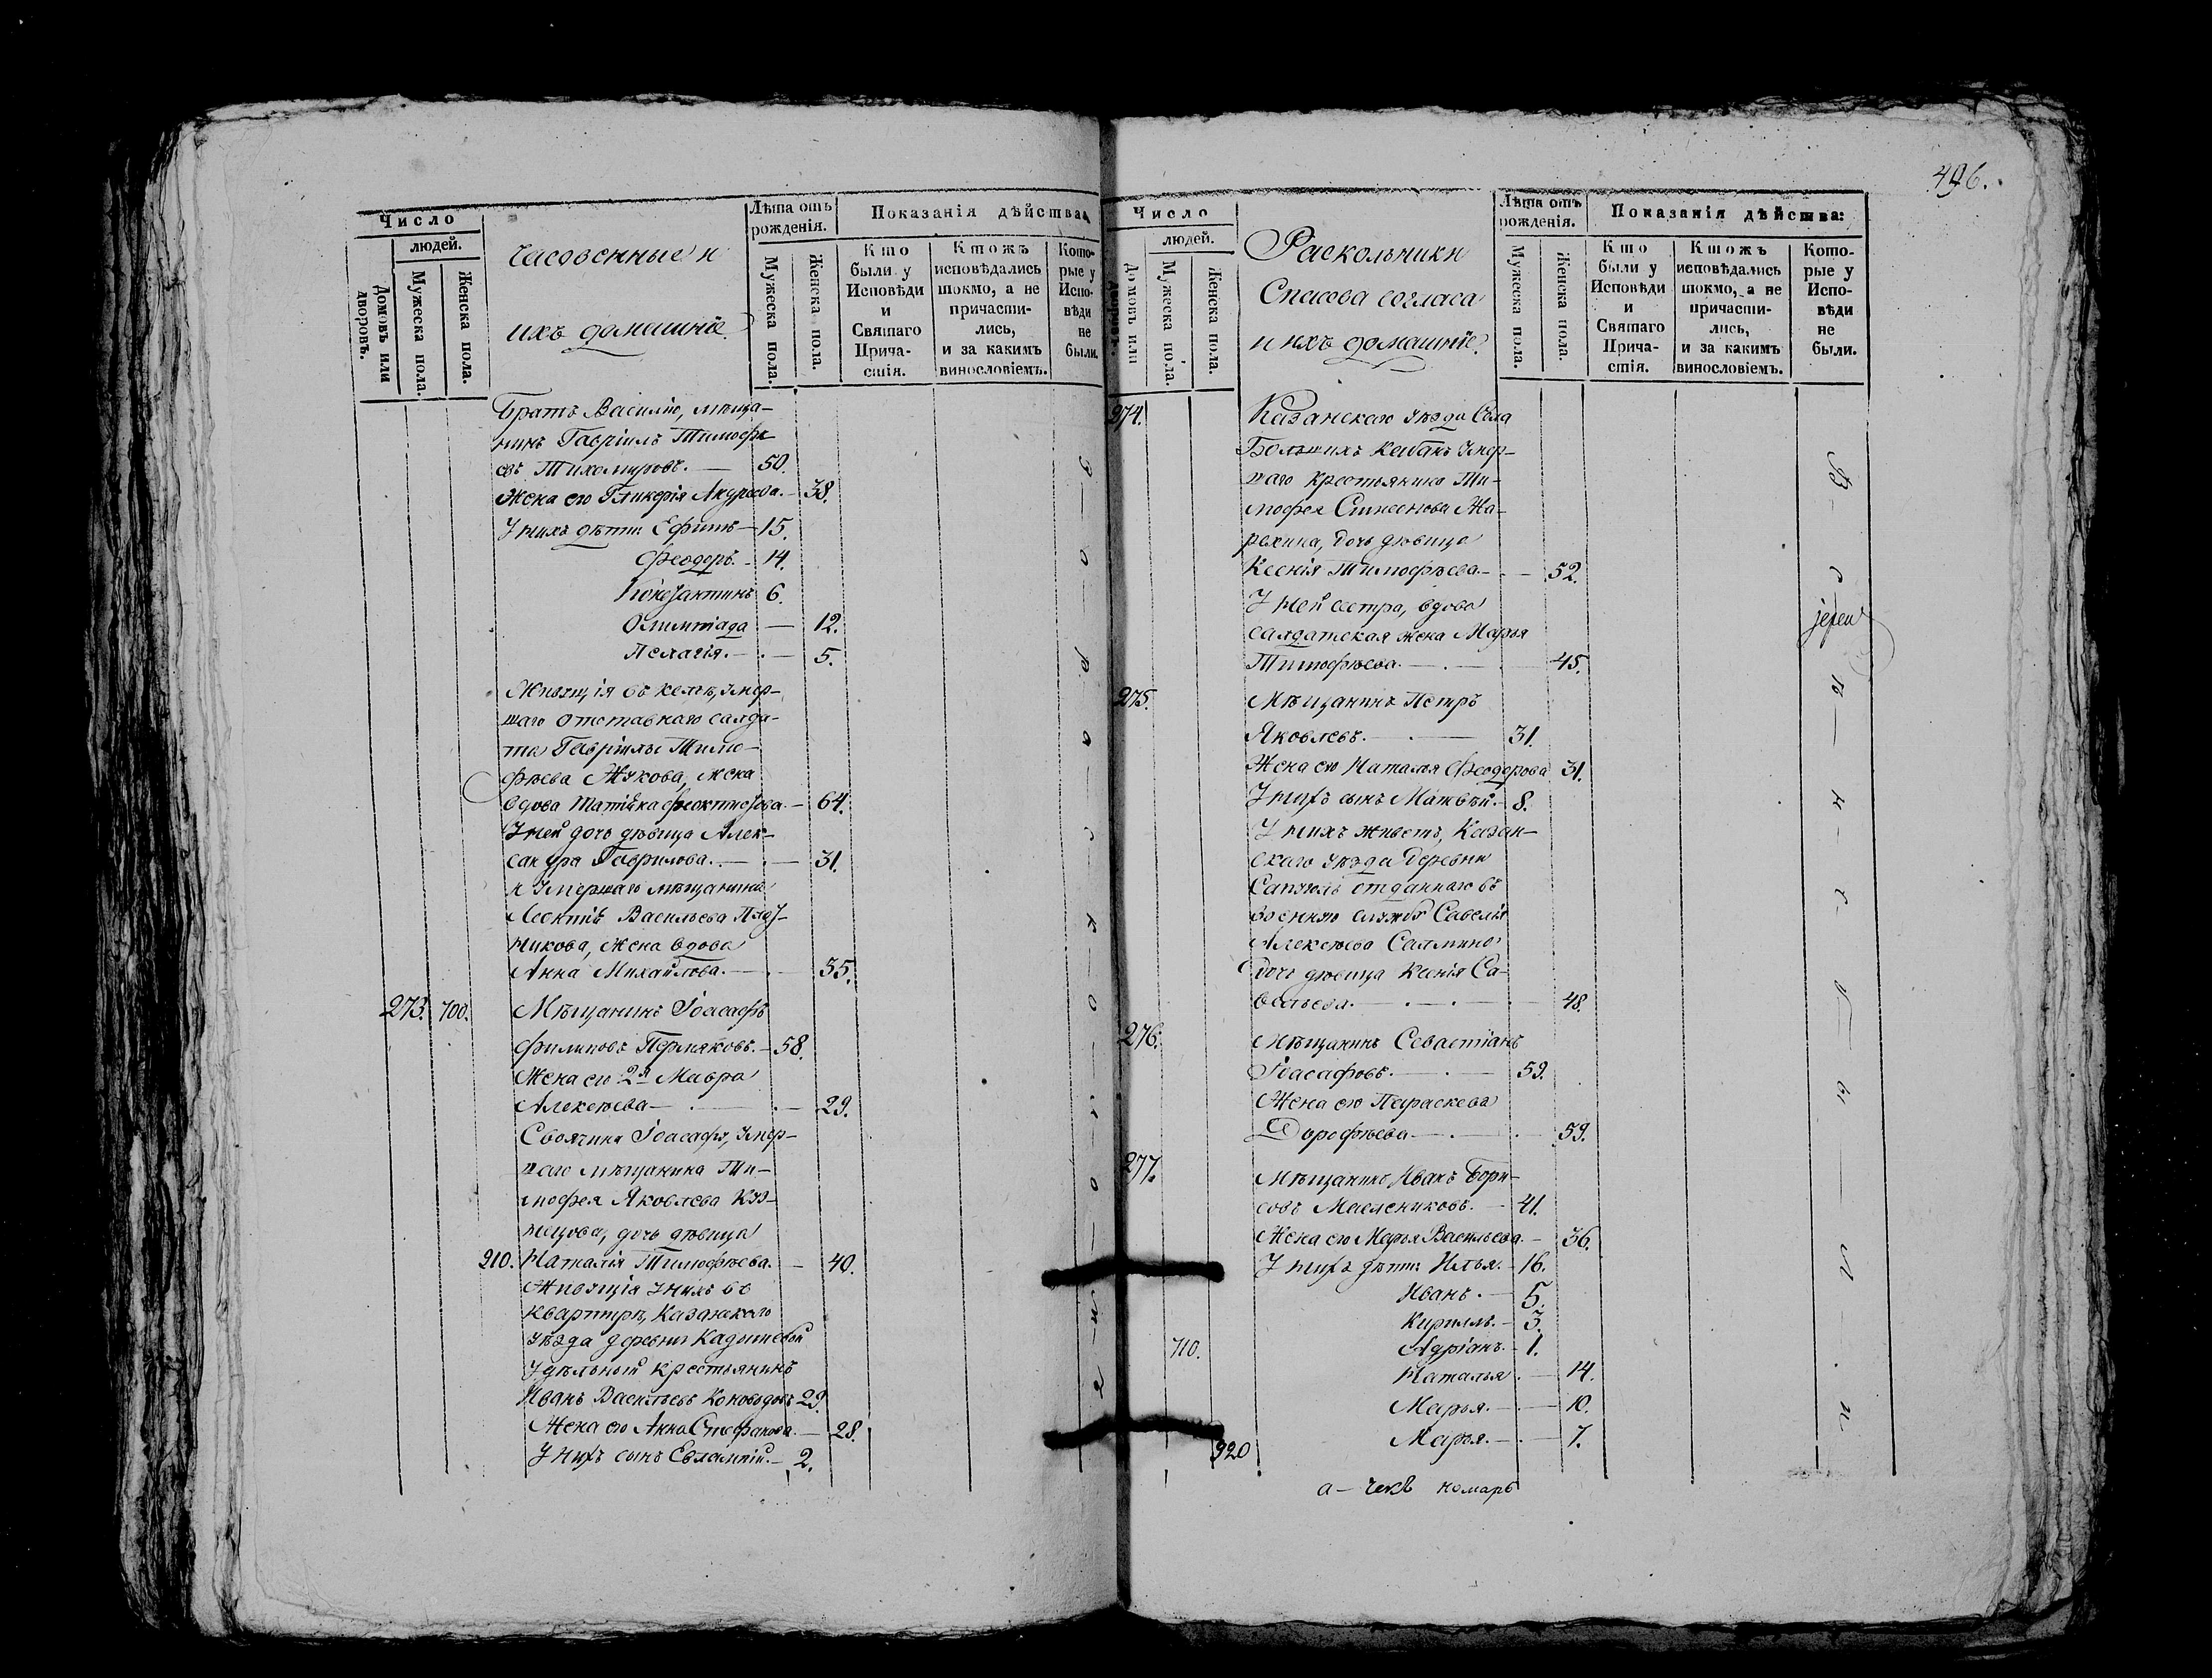 Число
людей.
Домовъ или дворовъ.
Мужеска пола.
Женска пола.
Часовенные и
ихъ домашніе.
Лѣта отъ рожденія.
Мужеска пола.
Женска пола.
Показанія дѣйства
Кто были у Исповѣди и Святаго Причастія.
Ктожъ исповѣдались токмо, а не причастились, и за какимъ винословіемъ.
Которые у Исповѣди не были.
Братъ Василію, мѣща-
нинъ Гавріилъ Тимофѣ
евъ Тихомировъ. — 50.
Жена его Гликерія Андреева. — 38.
У нихъ дѣти: Ефимъ — 15.
Феодоръ. — 14.
Константинъ 6.
Олимпіада — 12.
Пелагія. — 5.
Живущія въ кельѣ, умер-
шаго отставнаго салда-
та Гавріила Тимо-
фѣева Жукова, жена
вдова Татіана Феоктистова. — 64.
У ней дочь дѣвица Алек-
сандра Гаврилова. — 31.
и умершаго мѣщанина
Леонтія Васильева
никова, жена вдова
Анна Михайлова. — 55.
273. 700. Мѣщанинъ Іоасафъ
Филиповъ Пермяковъ. — 58.
Жена его 2я Мавра
Алексѣева — 29.
Своячина Іоасафа, умер-
шаго мѣщанина Ти-
мофея Яковлева Куз-
нецова, дочь дѣвица
910. Наталія Тимофѣева. — 40.
Живущія у нихъ въ
квартирѣ, Казанскаго
уѣзда деревни Кадышевой
Удѣльный крестьянинъ
Иванъ Васильевъ Коноводовъ 29.
Жена его Анна Стефанова. — 28.
У нихъ сынъ Евлампій. — 2.
496.
Число
людей.
Домовъ или дворовъ.
Мужеска пола.
Женска пола.
Раскольники
Спасова согласа
и ихъ домашніе.
Лѣта отъ рожденія.
Мужеска пола.
Женска пола.
Показанія дѣйства:
Кто были у Исповѣди и Святаго Причастія.
Ктожъ исповѣдались токмо, а не причастились, и за какимъ винословіемъ.
Которые у Исповѣди не были.
274. Казанскаго уѣзда Села
Большихъ Кабанъ умер-
шаго крестьянина Ти-
мофея Симеонова
дочь дѣвица
Ксенія Тимофѣева. — 52.
У ней сестра, вдова
салдатская жена Марья
Тимофѣева. — 45.
275. Мѣщанинъ Петръ
Яковлевъ. — 31.
Жена его Наталья Феодорова 31.
У нихъ сынъ Матвѣй. — 8.
У нихъ живетъ, Казан-
скаго уѣзда деревни
отданнаго въ
военную службу Савелія
Алексѣева
дочь дѣвица Ксенія Са-
вельева. — 48.
276. Мѣщанинъ Севастіанъ
Іоасафовъ. — 59.
Жена его Параскева
Дорофѣева — 59.
277. Мѣщанинъ Иванъ Бори-
совъ Маслениковъ. — 41.
Жена его Марья Васильева. — 36.
У нихъ дѣти: Илья. — 16.
Иванъ. — 5.
Кириллъ. — 3.
710. Адріанъ. — 1.
Наталья. — 14.
Марья. — 10.
920 Марья. — 7.
іерей